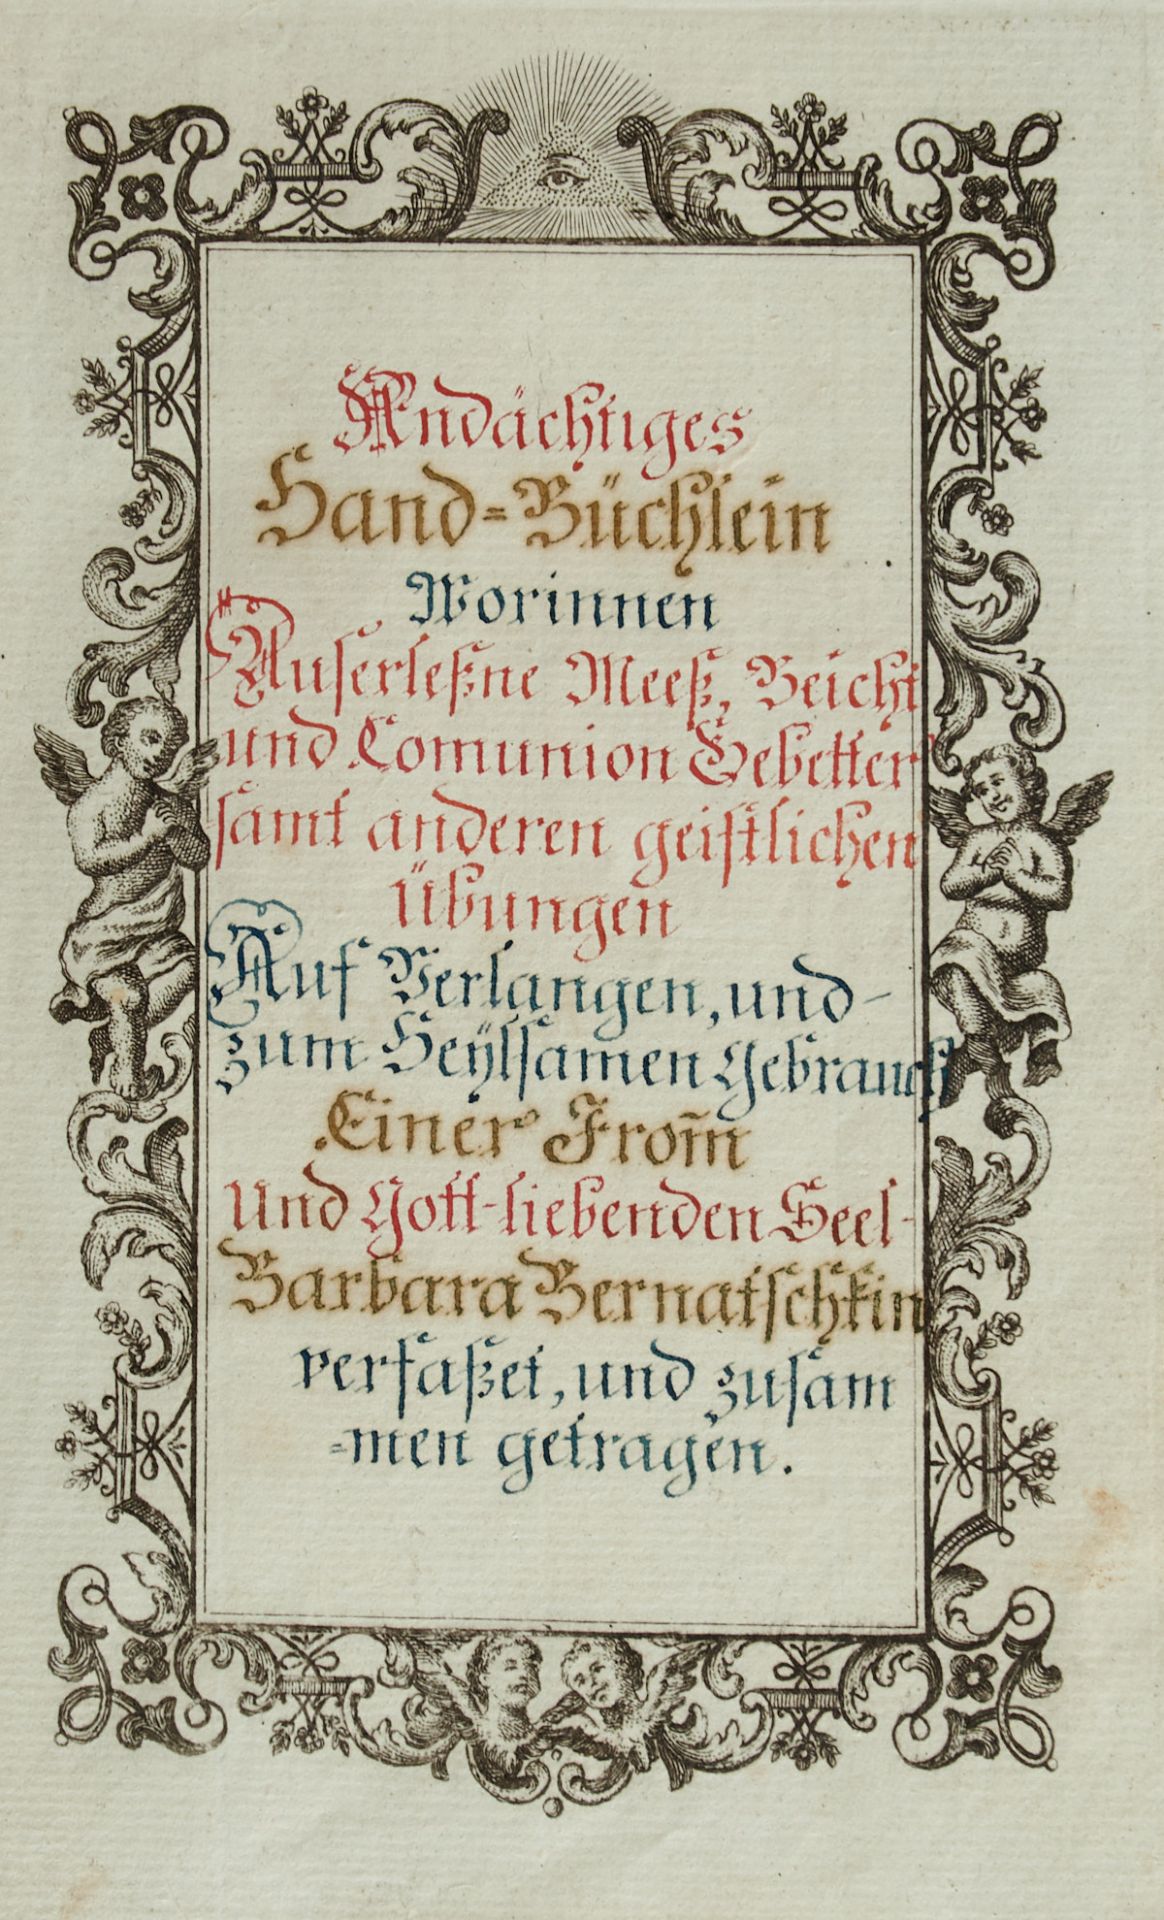 Andächtiges
Hand=Büchlein
Worinnen
Auserleßne Meeß, Beicht
und Comunion Gebetter
samt anderen geistlichen
Übungen
Auf Verlangen, und-
zum Heÿlsamen Gebrauch
Einer From̄
Und Gott-liebenden Seel-
Barbara Bernatschkin
verfaßet, und zusam
=men getragen.